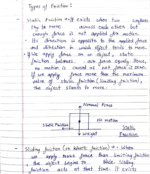 Types of Friction:
Static Friction :- It exists when two surfaces
try to move across each other but
enough force is not applied for motion.
Its direction is opposite to the applied force
and direction in which object starts to move.
If we apply force on an object, static
friction balances our force equally and
no motion is caused as net force is zero.
If we apply force more than the maximum
value of static friction (limiting friction),
the object starts to move.
Normal Force
No motion
Static Friction
Weight
Static
Friction
Sliding friction (or kinetic friction) :- When
we apply more force than limiting friction
the object begins to
friction acts at that time. It exists